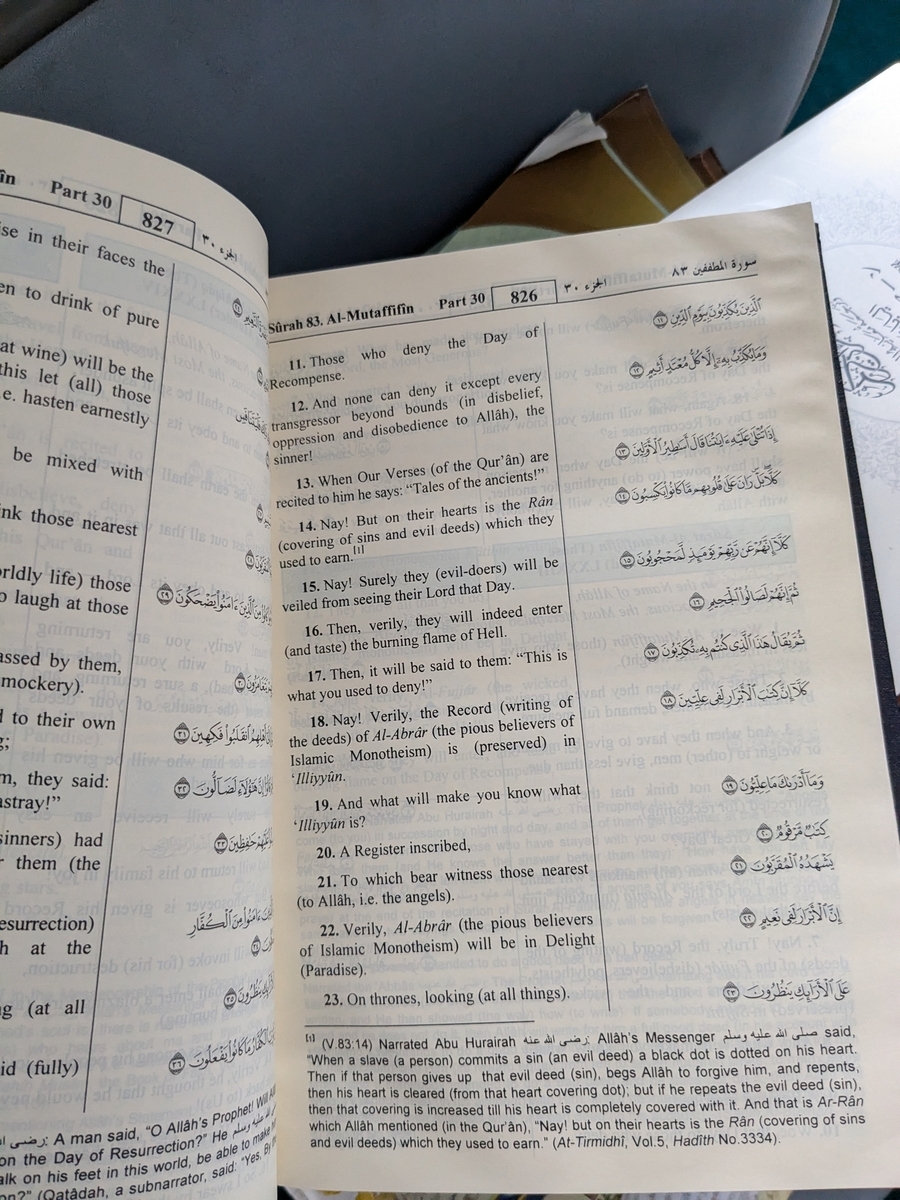 Sûrah 83. Al-Mutaffifîn Part 30 826 الجزء ٣٠ سورة المطففين ٨٣
11. Those who deny the Day of
Recompense.
ٱلَّذِينَ يُكَذِّبُونَ بِيَوْمِ ٱلدِّينِ ١١
12. And none can deny it except every
transgressor beyond bounds (in disbelief,
oppression and disobedience to Allâh), the
sinner!
وَمَا يُكَذِّبُ بِهِۦٓ إِلَّا كُلُّ مُعْتَدٍ أَثِيمٍ ١٢
13. When Our Verses (of the Qur’ân) are
recited to him he says: “Tales of the ancients!”
إِذَا تُتْلَىٰ عَلَيْهِ ءَايَٰتُنَا قَالَ أَسَٰطِيرُ ٱلْأَوَّلِينَ ١٣
14. Nay! But on their hearts is the Rân
(covering of sins and evil deeds) which they
used to earn.[1]
كَلَّا بَلْ رَانَ عَلَىٰ قُلُوبِهِم مَّا كَانُوا۟ يَكْسِبُونَ ١٤
15. Nay! Surely they (evil-doers) will be
veiled from seeing their Lord that Day.
كَلَّآ إِنَّهُمْ عَن رَّبِّهِمْ يَوْمَئِذٍ لَّمَحْجُوبُونَ ١٥
16. Then, verily, they will indeed enter
(and taste) the burning flame of Hell.
ثُمَّ إِنَّهُمْ لَصَالُوا۟ ٱلْجَحِيمِ ١٦
17. Then, it will be said to them: “This is
what you used to deny!”
ثُمَّ يُقَالُ هَٰذَا ٱلَّذِى كُنتُم بِهِۦ تُكَذِّبُونَ ١٧
18. Nay! Verily, the Record (writing of
the deeds) of Al-Abrâr (the pious believers of
Islamic Monotheism) is (preserved) in
‘Illiyyûn.
كَلَّآ إِنَّ كِتَٰبَ ٱلْأَبْرَارِ لَفِى عِلِّيِّينَ ١٨
19. And what will make you know what
‘Illiyyûn is?
وَمَآ أَدْرَىٰكَ مَا عِلِّيُّونَ ١٩
20. A Register inscribed,
كِتَٰبٌ مَّرْقُومٌ ٢٠
21. To which bear witness those nearest
(to Allâh, i.e. the angels).
يَشْهَدُهُ ٱلْمُقَرَّبُونَ ٢١
22. Verily, Al-Abrâr (the pious believers
of Islamic Monotheism) will be in Delight
(Paradise).
إِنَّ ٱلْأَبْرَارَ لَفِى نَعِيمٍ ٢٢
23. On thrones, looking (at all things).
عَلَى ٱلْأَرَآئِكِ يَنظُرُونَ ٢٣
[1] (V.83:14) Narrated Abu Hurairah رضي الله عنه: Allâh's Messenger صلى الله عليه وسلم said,
"When a slave (a person) commits a sin (an evil deed) a black dot is dotted on his heart.
Then if that person gives up that evil deed (sin), begs Allâh to forgive him, and repents,
then his heart is cleared (from that heart covering dot); but if he repeats the evil deed (sin),
then that covering is increased till his heart is completely covered with it. And that is Ar-Rân
which Allâh mentioned (in the Qur'ân), "Nay! but on their hearts is the Rân (covering of sins
and evil deeds) which they used to earn." (At-Tirmidhî, Vol.5, Hadîth No.3334).
Part 30 827 الجزء ٣٠
in their faces the
to drink of pure
wine) will be the
this let (all) those
hasten earnestly
be mixed with
those nearest
life) those
laugh at those
ٱلَّذِينَ ءَامَنُوا۟ يَضْحَكُونَ ٢٩
by them,
mockery).
to their own
ٱنقَلَبُوا۟ فَكِهِينَ ٣١
they said:
astray!”
هَٰٓؤُلَآءِ لَضَآلُّونَ ٣٢
had
them (the
حَٰفِظِينَ ٣٣
ءَامَنُوا۟ مِنَ ٱلْكُفَّارِ
at the
يَنظُرُونَ ٣٥
(at all
ٱلْكُفَّارُ مَا كَانُوا۟ يَفْعَلُونَ ٣٦
(fully)
A man said, "O Allâh's Prophet! Will
on the Day of Resurrection?" He
on his feet in this world, be able to make
(Qatâdah, a subnarrator, said: "Yes, By